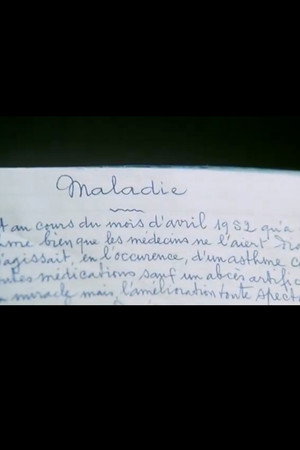 Maladie
t au cours du mois d'avril 1952 qu'a
bien que les médecins ne l'aient
'agissait, en l'occurence, d'un asthme c
médications sauf un abcès artific
miracle mais l'amélioration toute spect